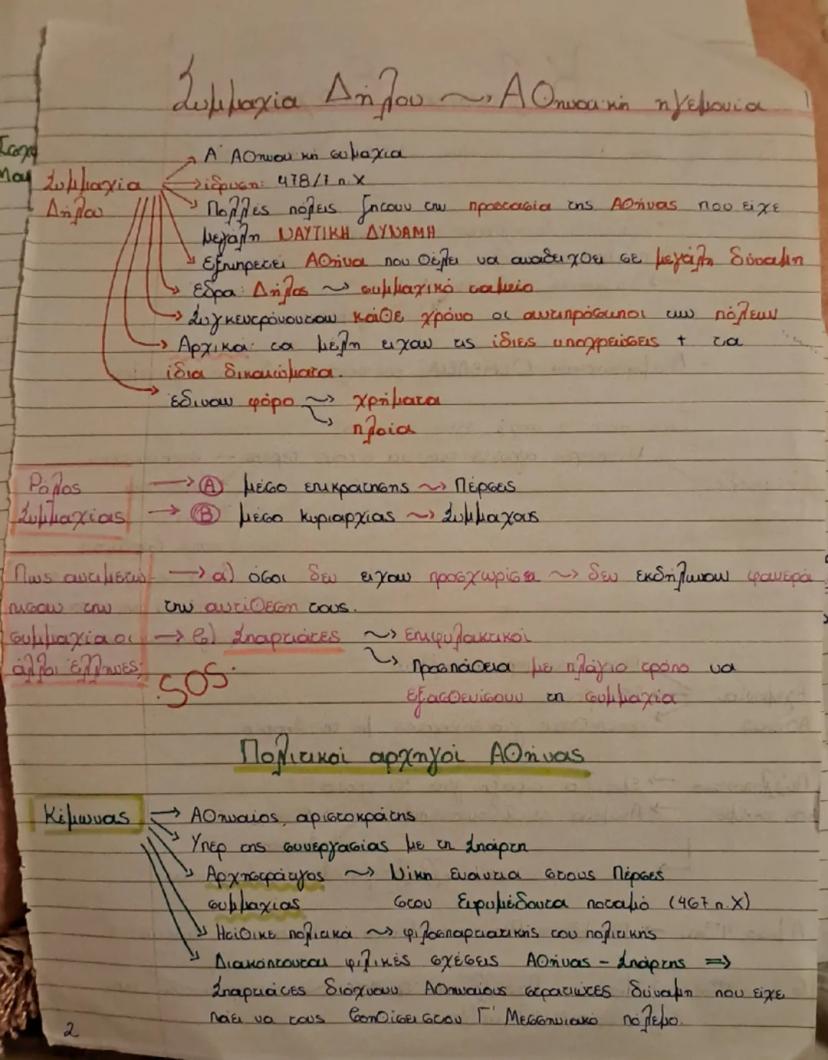 Συμμαχία Δήλου ~> Αθηναϊκή ηγεμονία
Συμμαχία Δήλου
→ Α' Αθηναϊκή συμαχία
→ ίδρυση: 478/7 π.Χ
→ Πολλές πόλεις ζητουν την προστασία της Αθήνας που είχε
μεγάλη ΝΑΥΤΙΚΗ ΔΥΝΑΜΗ
→ εξυπηρετεί Αθήνα που θέλει να αναδειχθεί σε μεγάλη δύναμη
→ έδρα: Δήλος ~> συμμαχικό ταμείο
→ Συγκεντρώνονταν κάθε χρόνο οι αντιπρόσωποι των πόλεων
→ Αρχικά: τα μέλη είχαν τις ίδιες υποχρεώσεις + τα
ίδια δικαιώματα.
→ έδιναν φόρο ~> χρήματα
↳ πλοία
Ρόλος → Α μέσο επικράτησης ~> Πέρσες
Συμμαχίας → Β μέσο κυριαρχίας ~> Συμμάχους
Πως αντιμετώ → α) όσοι δεν είχαν προσχωρίσει ~> δεν εκδήλωναν φανερά
πισαν την την αντίθεση τους.
συμμαχία οι → β) Σπαρτιάτες ~> επιφυλακτικοί
άλλοι έλληνες; SOS. ↳ προσπάθεια με πλάγιο τρόπο να
εξασθενίσουν τη συμμαχία
Πολιτικοί αρχηγοί Αθήνας
Κίμωνας → Αθηναίος, αριστοκράτης
→ Υπέρ της συνεργασίας με τη Σπάρτη
→ Αρχηστράτηγος ~> Νίκη Ενάντια στους Πέρσες
συμμαχίας στον Ευρυμέδοντα ποταμό (467 π.Χ)
→ Ηττήθηκε πολιτικά ~> φιλοσπαρτιατικής του πολιτικής
→ Διακόπτονται φιλικές σχέσεις Αθήνας - Σπάρτης ⇒
Σπαρτιάτες διώχνουν Αθηναίους στρατιώτες δύναμη που είχε
πάει να τους βοηθίσει στον Γ' Μεσσηνιακό πόλεμο.
2